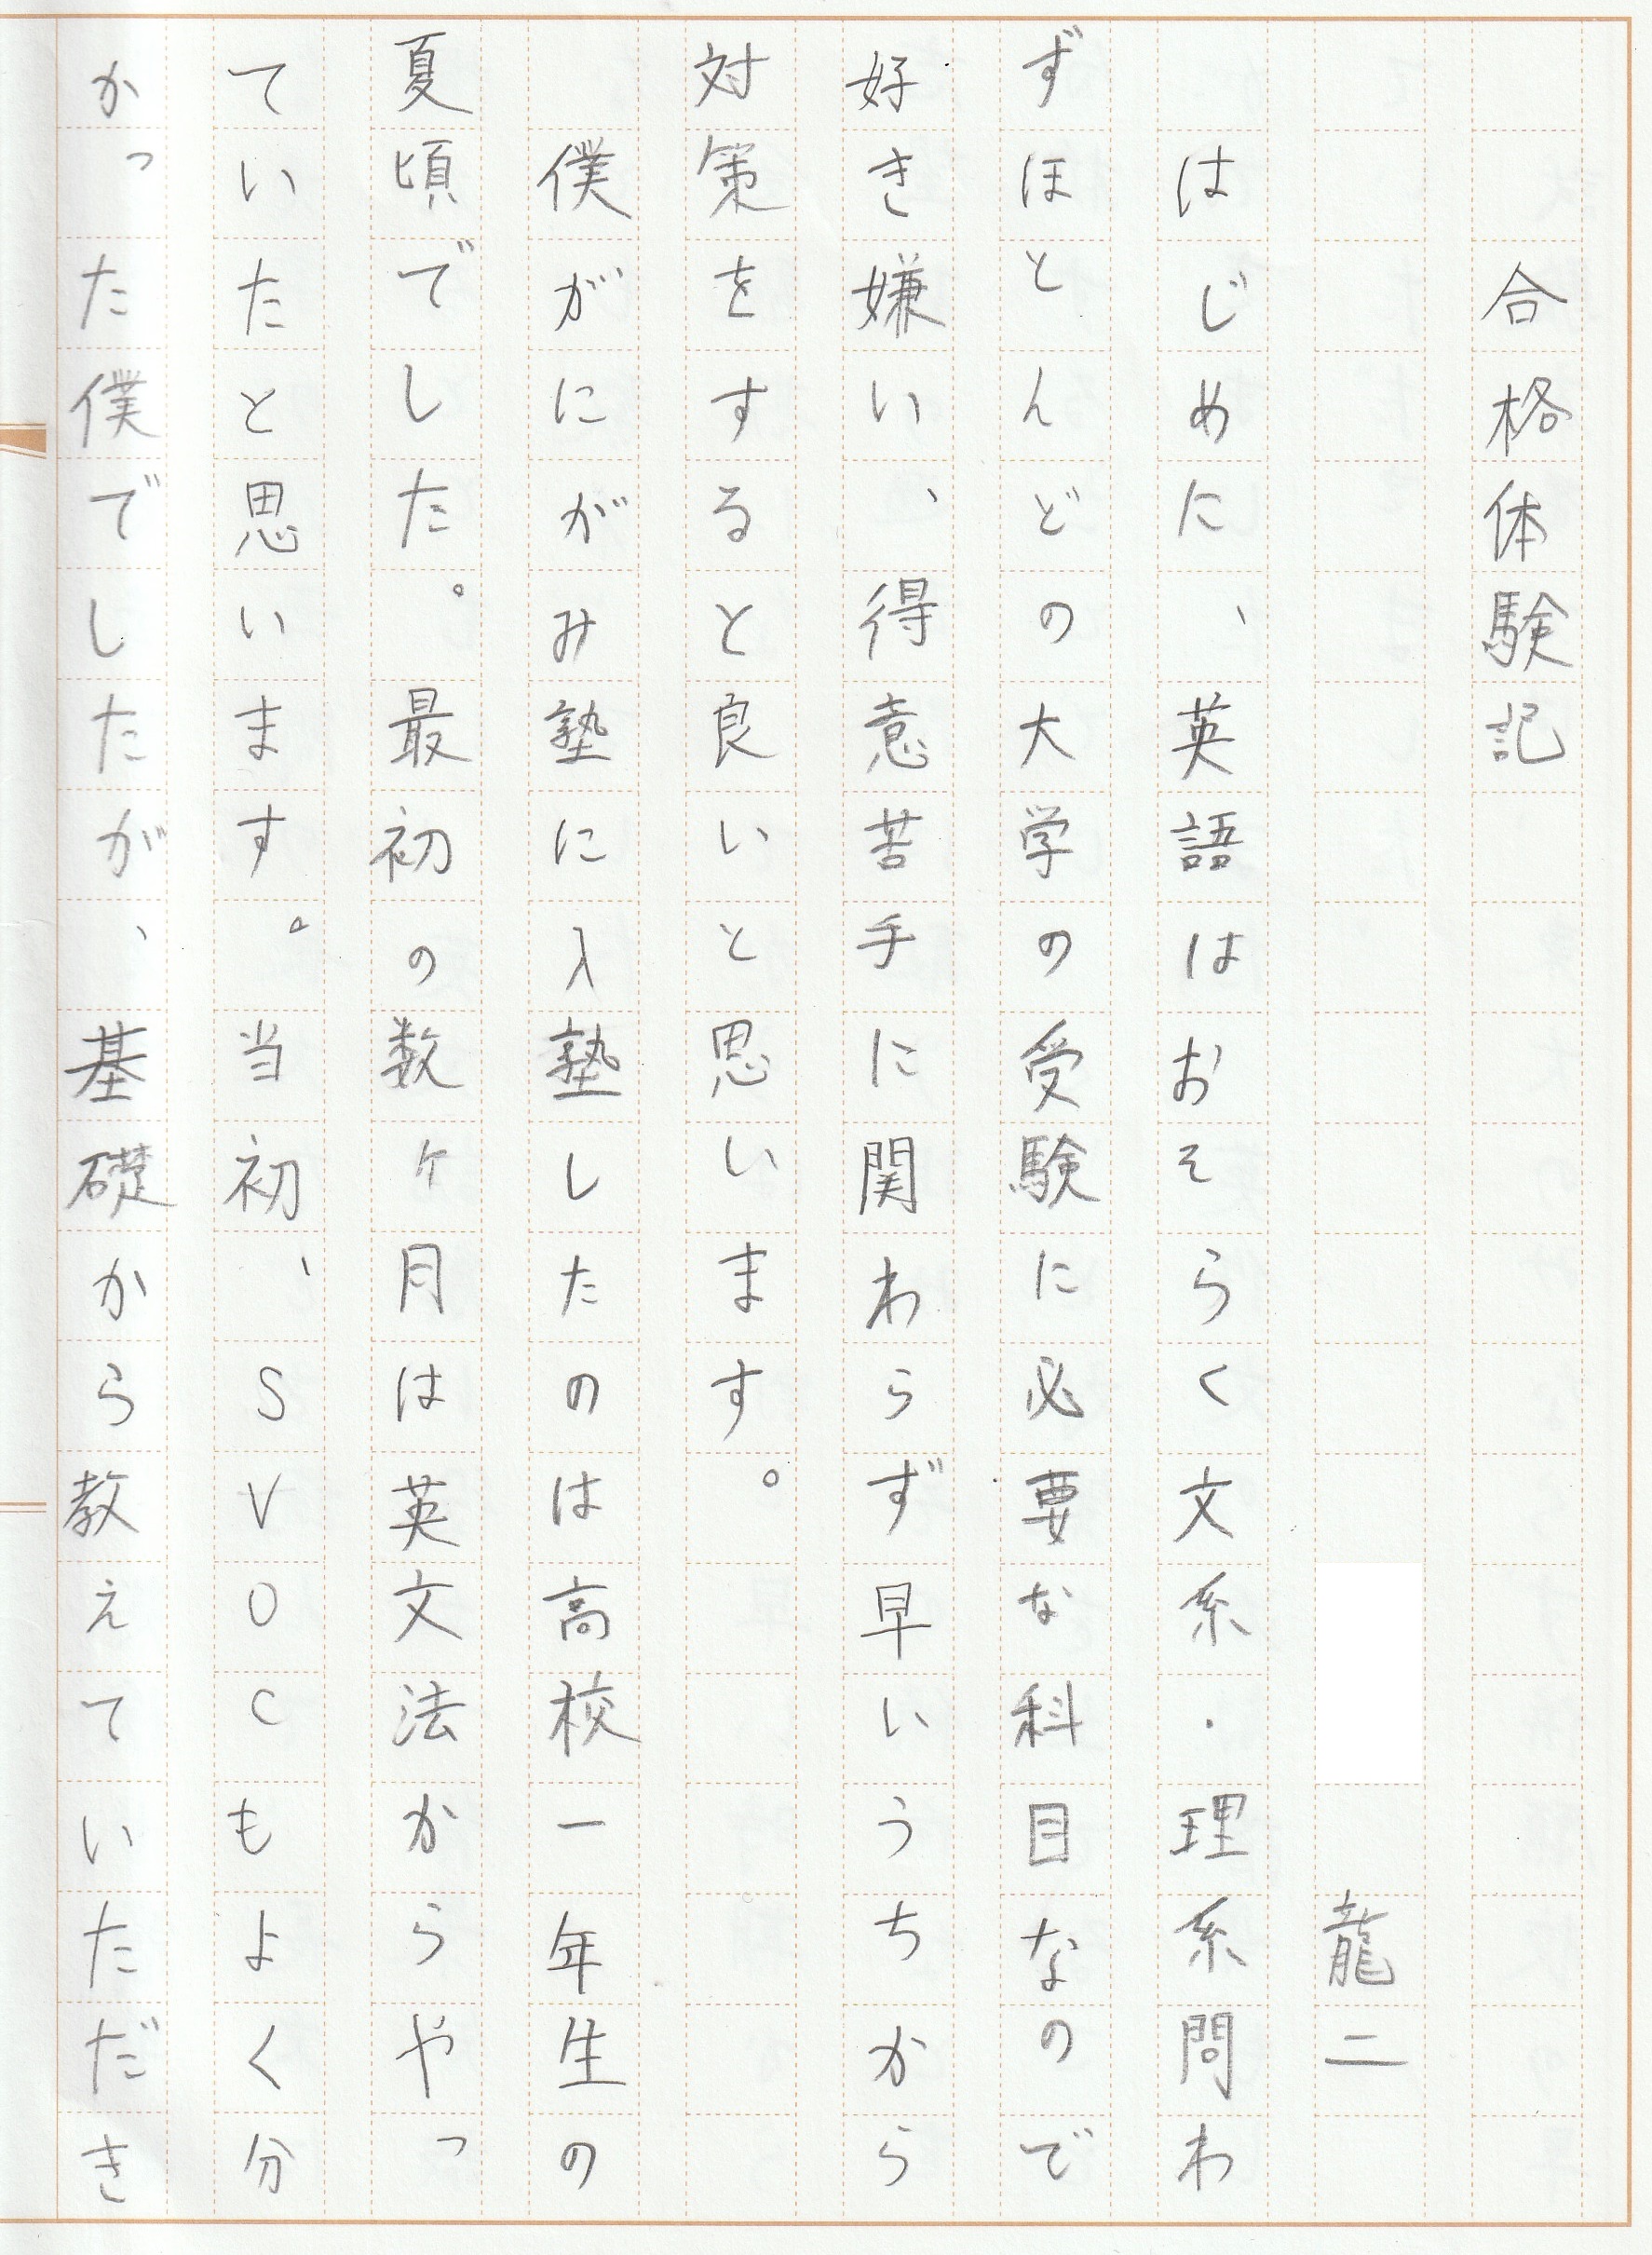 合格体験記
龍二
はじめた、英語はおそらく文系・理系問わ
ずほとんどの大学の受験に必要な科目なので
好き嫌い、得意苦手に関わらず早いうちから
対策をすると良いと思います。
僕がにがみ塾に入塾したのは高校一年生の
夏頃でした。最初の数ヶ月は英文法からやっ
ていたと思います。当初、SVOCもよく分
かった僕でしたが、基礎から教えていただき